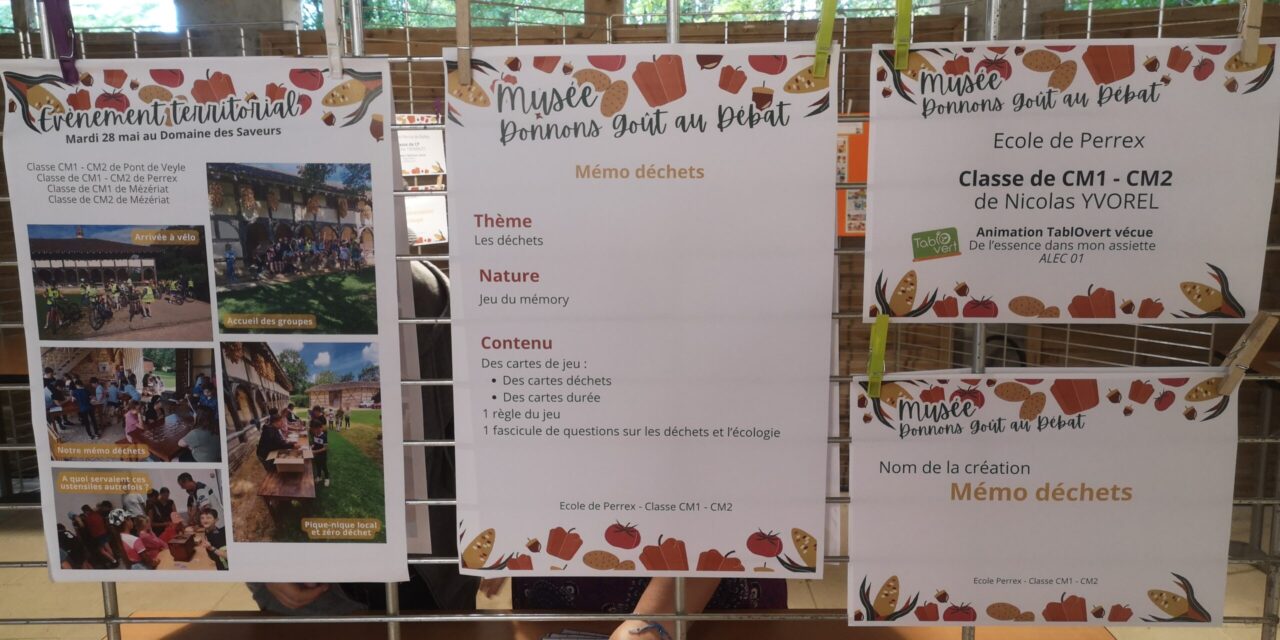 Évènement territorial
Mardi 28 mai au Domaine des Saveurs
Classe CM1 - CM2 de Pont de Veyle
Classe de CM1 - CM2 de Perrex
Classe de CM1 de Mézériat
Classe de CM2 de Mézériat
Arrivée à vélo
Accueil des groupes
Notre mémo déchets
A quoi servaient ces
ustensiles autrefois ?
Pique-nique local
et zéro déchet
Musée
Donnons Goût au Débat
Mémo déchets
Thème
Les déchets
Nature
Jeu du mémory
Contenu
Des cartes de jeu :
• Des cartes déchets
• Des cartes durée
1 règle du jeu
1 fascicule de questions sur les déchets et l'écologie
Ecole de Perrex - Classe CM1 - CM2
Musée
Donnons Goût au Débat
Ecole de Perrex
Classe de CM1 - CM2
de Nicolas YVOREL
TablOvert
Animation TablOvert vécue
De l'essence dans mon assiette
ALEC 01
Musée
Donnons Goût au Débat
Nom de la création
Mémo déchets
Ecole Perrex - Classe CM1 - CM2